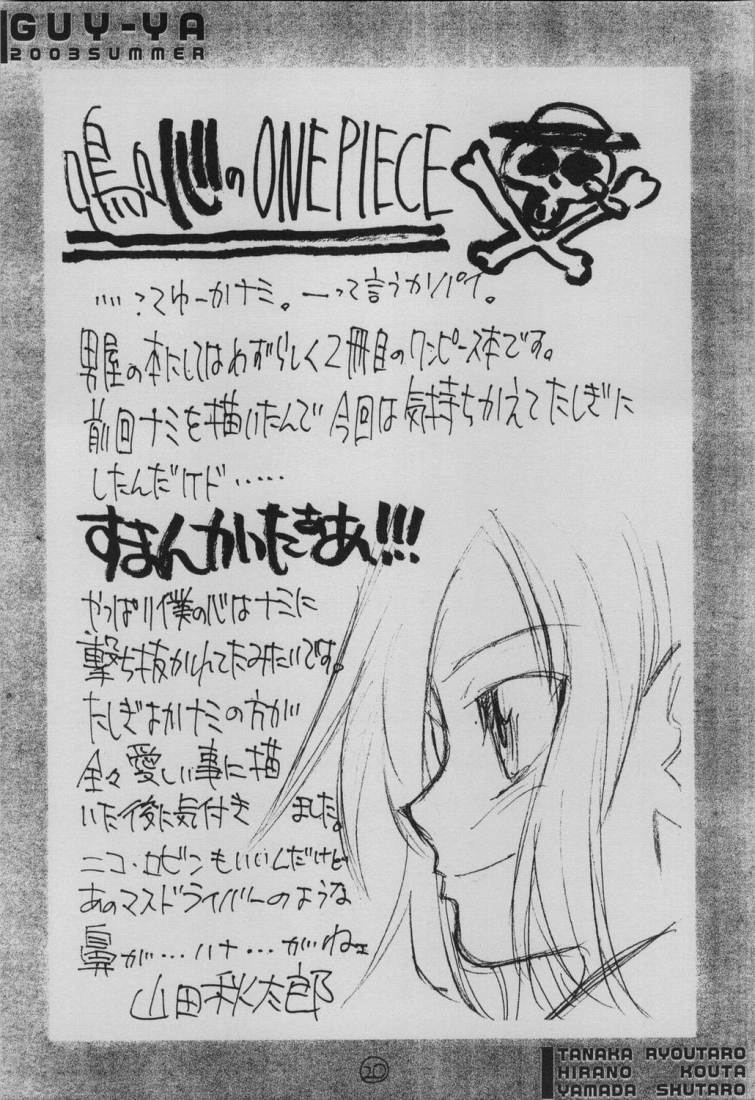 GUY-YA
2003 SUMMER
の ONE PIECE
男屋の本にしてはめずらしく2冊目のワンピース本です。
前回ナミを描いたんで今回は気持ちかえてたしぎに
したんだけド……
すまんかいたさあん!!!
やっぱり僕の心はナミに
撃ち抜かれてたみたいです。
たしぎよかナミの方が
全々愛しい事に描
いた後に気付き ました。
ニコ・ロビンもいいんだけど
あのマスドライバーのような
鼻が…ハナ…がねェ
山田秋太郎
20
TANAKA RYOUTARO
HIRANO KOUTA
YAMADA SHUTARO